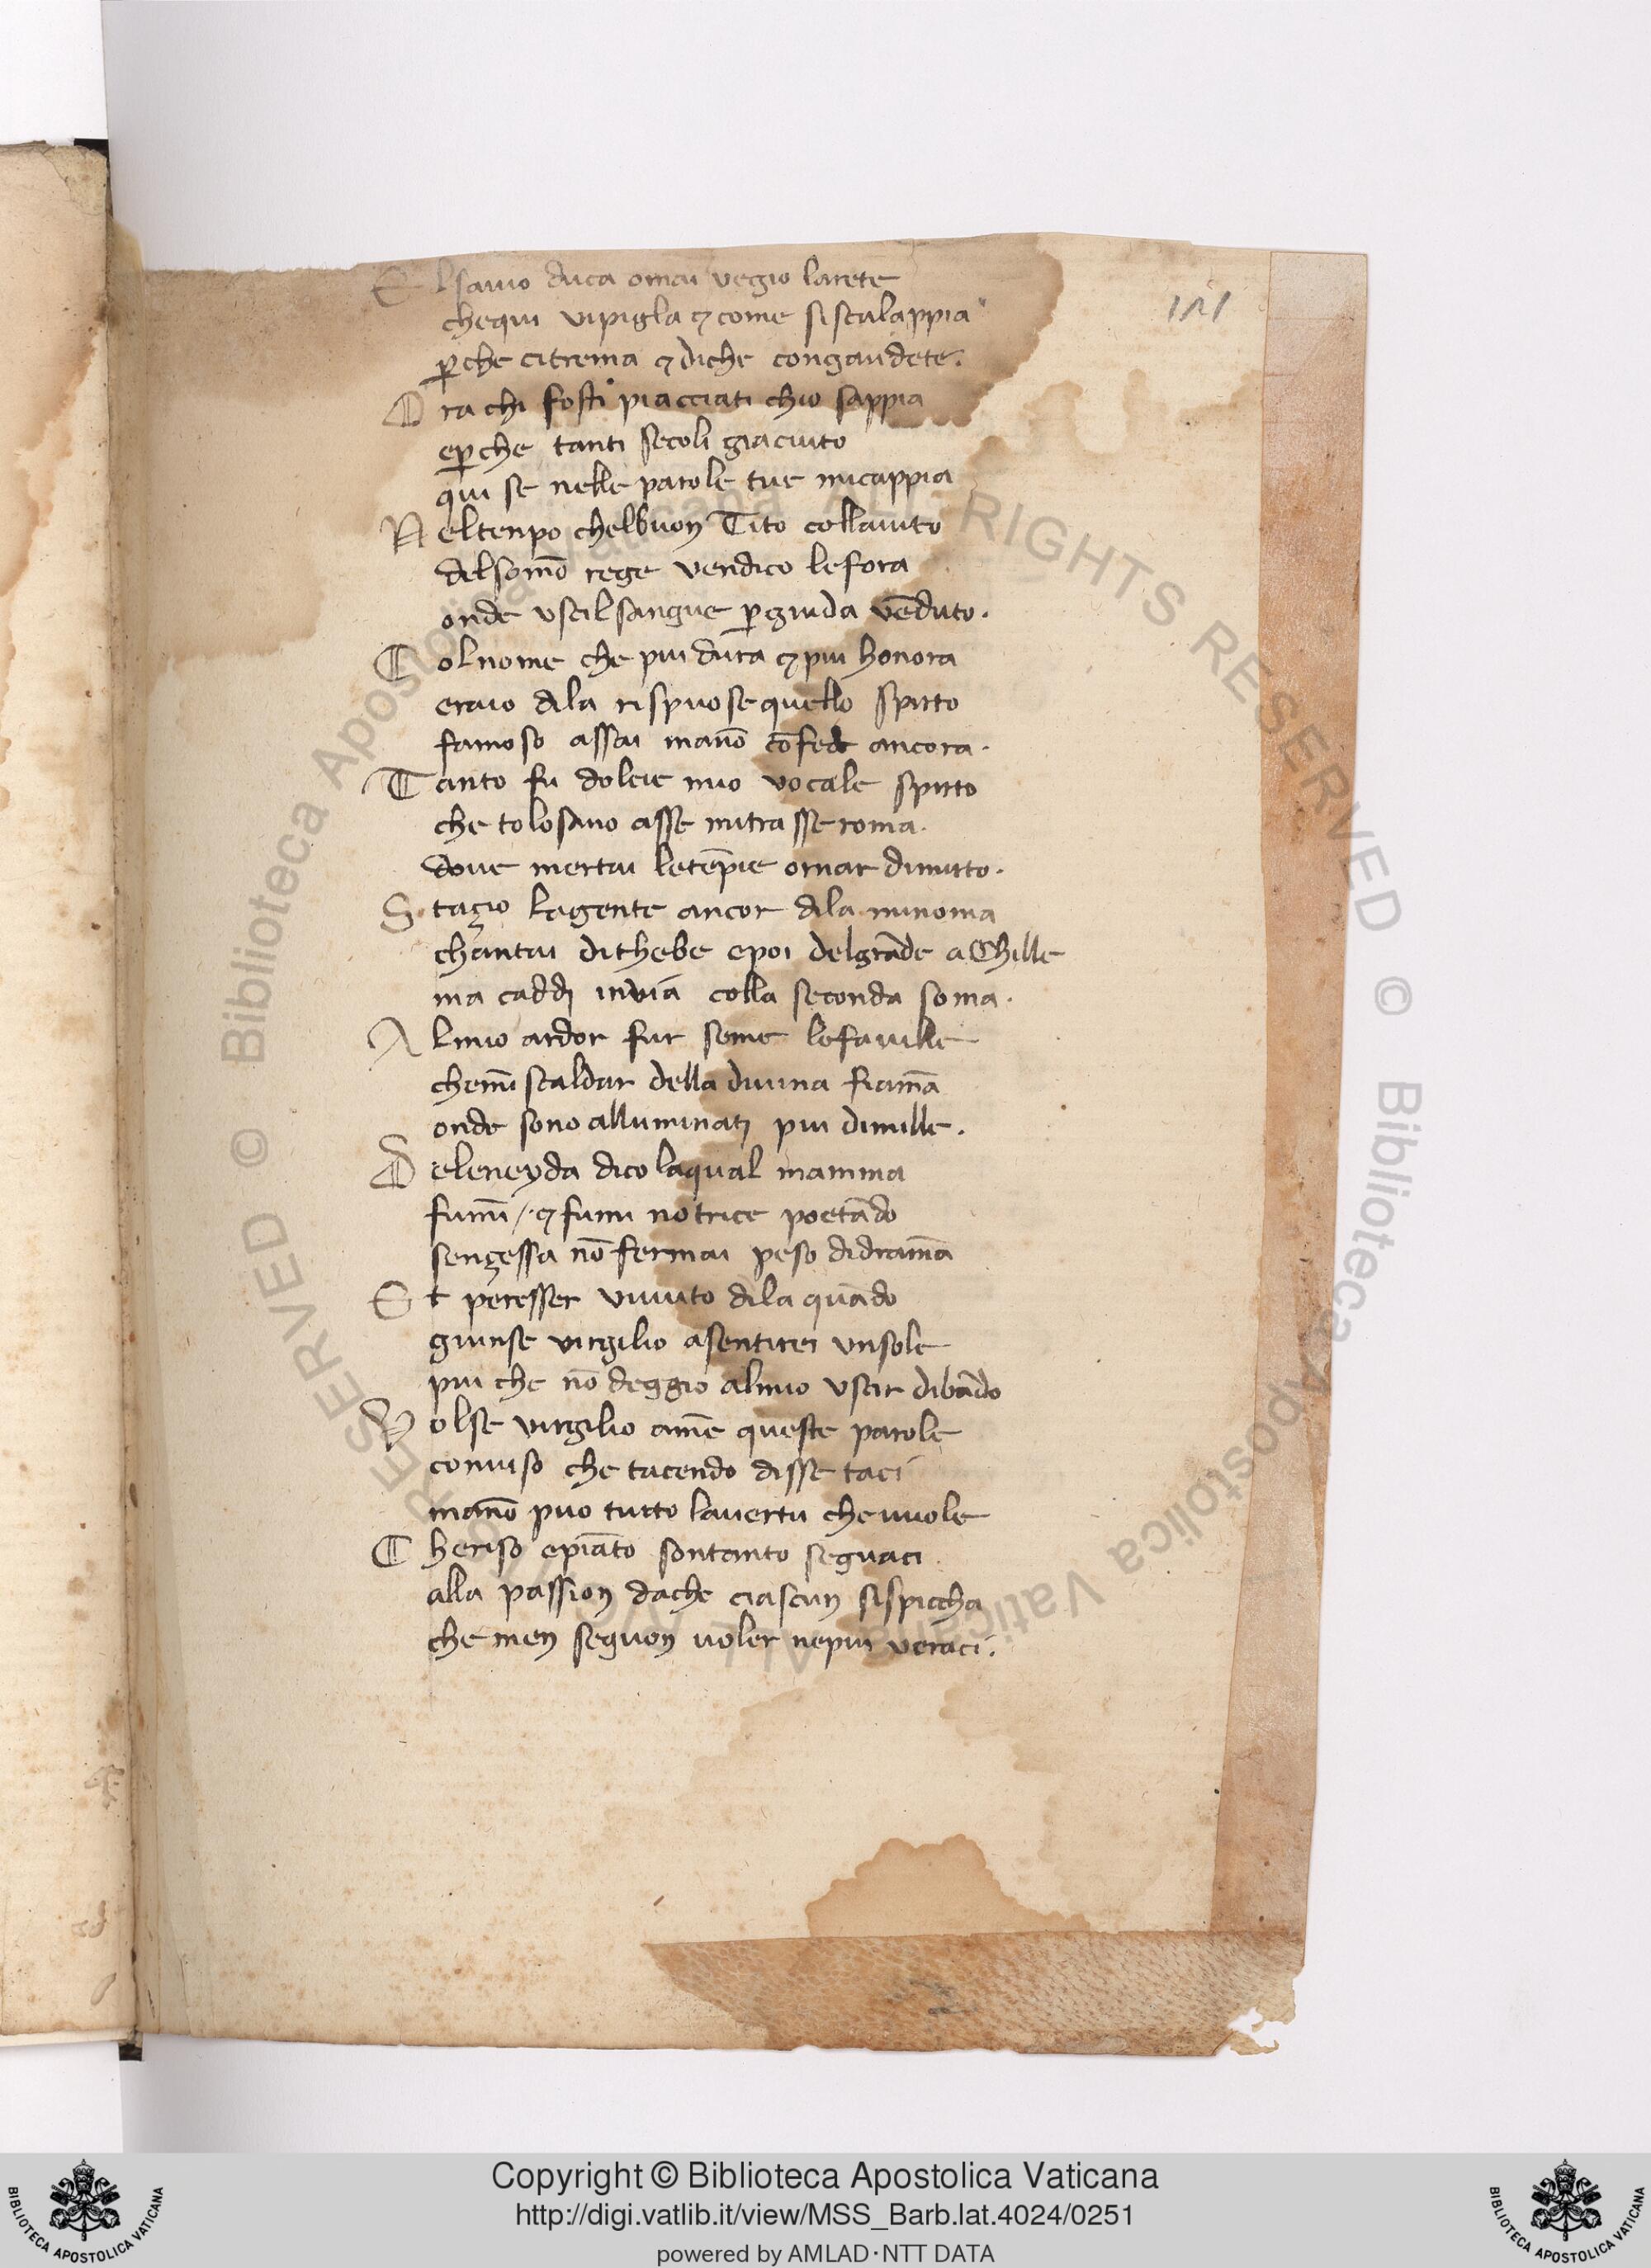 E lsauio duca omai vegio larete
chequi vipigla ⁊ come siscalappia
ꝑche citrema ⁊ diche congaudete.
O ra chi fosti piacciati chio sappia
eꝑche tanti secoli giaciuto
qui se nelle parole tue micappia
N eltenpo chelbuon Tito collaiuto
delsomō rege vendico lefora
onde uscilsangue ꝑgiuda vēduto.
C olnome che piu dura ⁊ piu honora
eraio dila rispuose quello spirto
famoso assai manō cōfede ancora.
T anto fu dolcie mio vocale spirto
che tolosano asse mitrasse roma.
doue mertai letēpie ornar dimirto.
S tazio lagente ancor dila minoma
chantai dithebe epoi delgrāde aChille
ma caddi invia colla seconda soma.
A lmio ardor fur seme lefauille
chemī scaldar della diuina fiamā
onde sono alluminati piu dimille.
D eleneyda dico laqual mamma
fumī / ⁊ fumi notrice poetādo
senzessa nō fermai peso didramā
E t peresser viuuto dila quādo
giunse virgilio asentirei vnsole
piu che nō deggio almio uscir dibādo
V olse virgilio amē queste parole
conuiso che tacendo disse taci
manō puo tutto lauertu cheuuole
C heriso epiāto sontanto seguaci
alla passion dache ciascun sispiccha
che men seguon uoler nepiu veraci.
Copyright © Biblioteca Apostolica Vaticana
http://digi.vatlib.it/view/MSS_Barb.lat.4024/0251
powered by AMLAD·NTT DATA
BIBLIOTECA APOSTOLICA VATICANA
BIBLIOTECA APOSTOLICA VATICANA